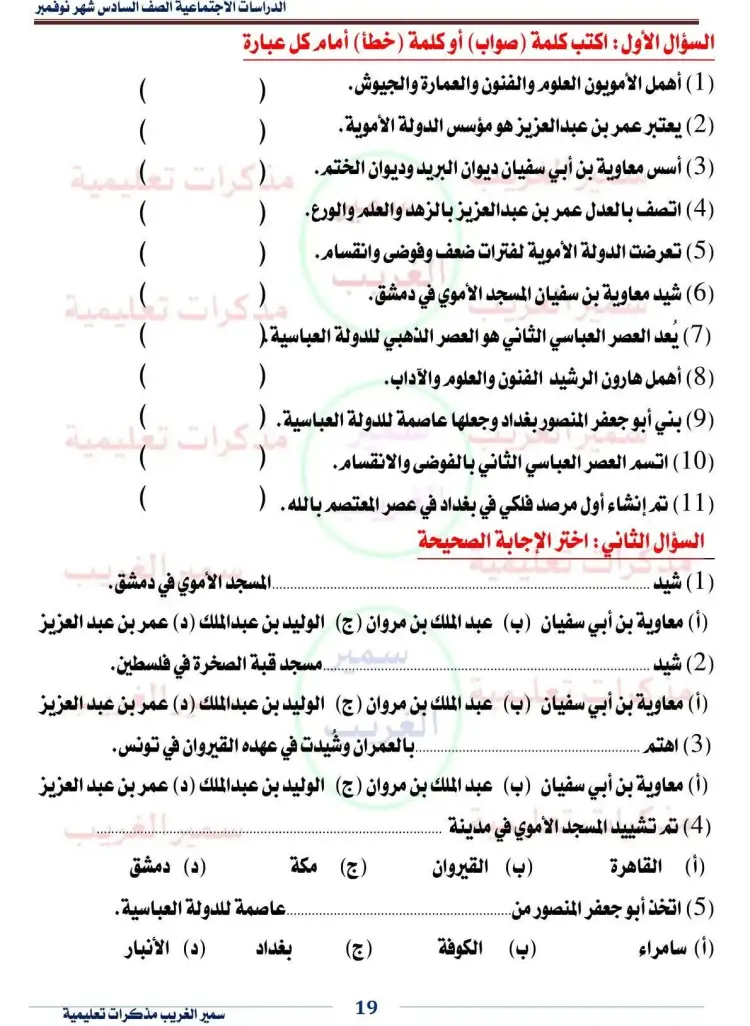 الدراسات الاجتماعية الصف السادس شهر نوفمبر
السؤال الأول: اكتب كلمة (صواب) أو كلمة (خطأ) أمام كل عبارة
(1) أهمل الأمويون العلوم والفنون والعمارة والجيوش. ( )
(2) يعتبر عمر بن عبدالعزيز هو مؤسس الدولة الأموية. ( )
(3) أسس معاوية بن أبي سفيان ديوان البريد وديوان الختم. ( )
(4) اتصف بالعدل عمر بن عبدالعزيز بالزهد والعلم والورع. ( )
(5) تعرضت الدولة الأموية لفترات ضعف وفوضى وانقسام. ( )
(6) شيد معاوية بن سفيان المسجد الأموي في دمشق. ( )
(7) يُعد العصر العباسي الثاني هو العصر الذهبي للدولة العباسية. ( )
(8) أهمل هارون الرشيد الفنون والعلوم والآداب. ( )
(9) بني أبو جعفر المنصور بغداد وجعلها عاصمة للدولة العباسية. ( )
(10) اتسم العصر العباسي الثاني بالفوضى والانقسام. ( )
(11) تم إنشاء أول مرصد فلكي في بغداد في عصر المعتصم بالله. ( )
السؤال الثاني: اختر الإجابة الصحيحة
(1) شيد ........................ المسجد الأموي في دمشق.
(أ) معاوية بن أبي سفيان (ب) عبد الملك بن مروان (ج) الوليد بن عبدالملك (د) عمر بن عبد العزيز
(2) شيد ........................ مسجد قبة الصخرة في فلسطين.
(أ) معاوية بن أبي سفيان (ب) عبد الملك بن مروان (ج) الوليد بن عبدالملك (د) عمر بن عبد العزيز
(3) اهتم ........................ بالعمران وشُيدت في عهده القيروان في تونس.
(أ) معاوية بن أبي سفيان (ب) عبد الملك بن مروان (ج) الوليد بن عبدالملك (د) عمر بن عبد العزيز
(4) تم تشييد المسجد الأموي في مدينة ........................
(أ) القاهرة (ب) القيروان (ج) مكة (د) دمشق
(5) اتخذ أبو جعفر المنصور من ........................ عاصمة للدولة العباسية.
(أ) سامراء (ب) الكوفة (ج) بغداد (د) الأنبار
19
سمير الغريب مذكرات تعليمية